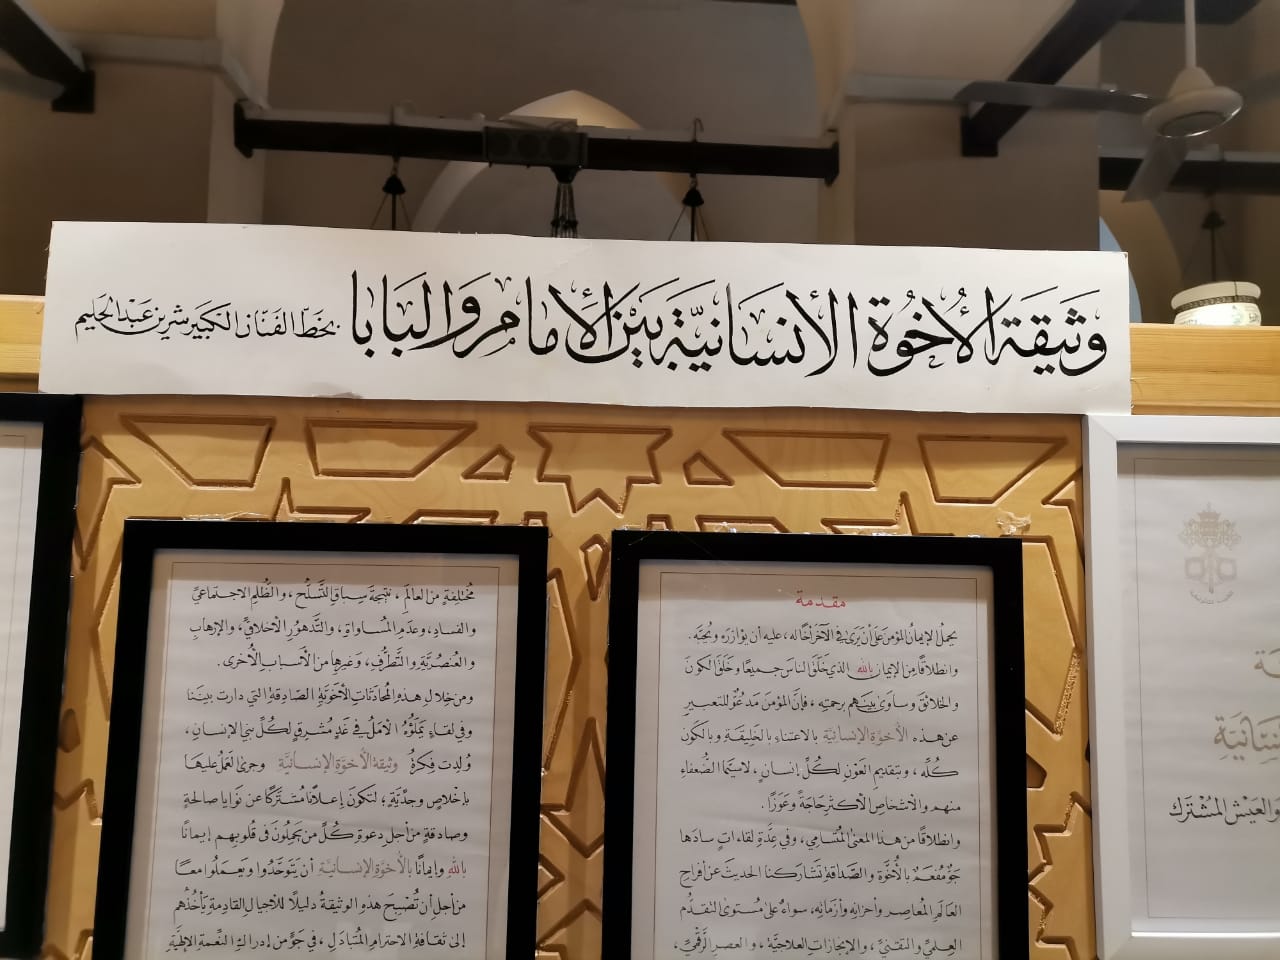 وثيقة الأخوة الأنسانية بين الأمام والبابا بخط الفنان الكبير شرين عبد الحليم
مقدمة
يحملُ الإيمانُ المؤمنَ على أن يَرَى في الآخَر أخًا له، عليه أن يؤازرَه ويُحبَّه.
وانطلاقًا مِن الإيمانِ بالله الذي خَلَقَ الناسَ جميعًا وخَلَقَ الكونَ
والخلائقَ وساوَى بينَهم برحمتِه، فإنَّ المؤمنَ مَدعُوٌّ للتعبيرِ
عن هذه الأخوَّةِ الإنسانيَّةِ بالاعتناءِ بالخَلِيقةِ وبالكَونِ
كُلِّه، وبتقديمِ العَوْنِ لكُلِّ إنسانٍ، لاسيَّما الضُّعفاءِ
منهم والأشخاصِ الأكثَرِ حاجَةً وعَوَزًا.
وانطلاقًا من هذا المعنى المُتَسامِي، وفي عِدَّةِ لقاءاتٍ سادَها
جَوٌّ مُفعَمٌ بالأُخوَّةِ والصَّداقةِ تَشارَكنا الحديثَ عن أفراحِ
العَالَمِ المُعاصِر وأحزانِه وأزماتِه، سواءٌ على مُستَوى التقدُّم
العِلميِّ والتقنيِّ، والإنجازاتِ العلاجيَّة، والعصرِ الرَّقْميِّ،
مُختلِفةٍ من العالَمِ، نتيجةَ سِباقِ التَّسلُّح، والظُّلمِ الاجتماعيِّ
والفسادِ، وعدَمِ المُساواةِ، والتَّدهورِ الأخلاقيِّ، والإرهابِ
والعُنصُريَّةِ والتَّطرُّفِ، وغيرِها من الأسبابِ الأُخرى.
ومن خِلالِ هذه المُحادَثاتِ الأخَويَّةِ الصادِقةِ التي دارت بينَنا
وفي لقاءٍ يَملَؤُهُ الأمَلُ في غَدٍ مُشرِقٍ لكُلِّ بني الإنسانِ،
وُلِدت فكرةُ وثيقةِ الأخوَّةِ الإنسانيَّةِ وجرى العَمَلُ عليها
بإخلاصٍ وجديَّةٍ؛ لتكونَ إعلانًا مُشتَركًا عن نَوايا صالحةٍ
وصادقةٍ من أجلِ دعوةِ كُلِّ مَن يَحمِلُونَ في قُلوبِهم إيمانًا
باللهِ وإيمانًا بالأخوَّةِ الإنسانيَّةِ أن يَتَوحَّدُوا ويَعمَلُوا معًا
من أجلِ أن تُصبِحَ هذه الوثيقةُ دليلًا للأجيالِ القادِمةِ يَأخُذُهم
إلى ثقافةِ الاحترامِ المُتبادَلِ، في جَوٍّ من إدراكِ النِّعمةِ الإلهيَّةِ
والعَيْش المُشْتَرك